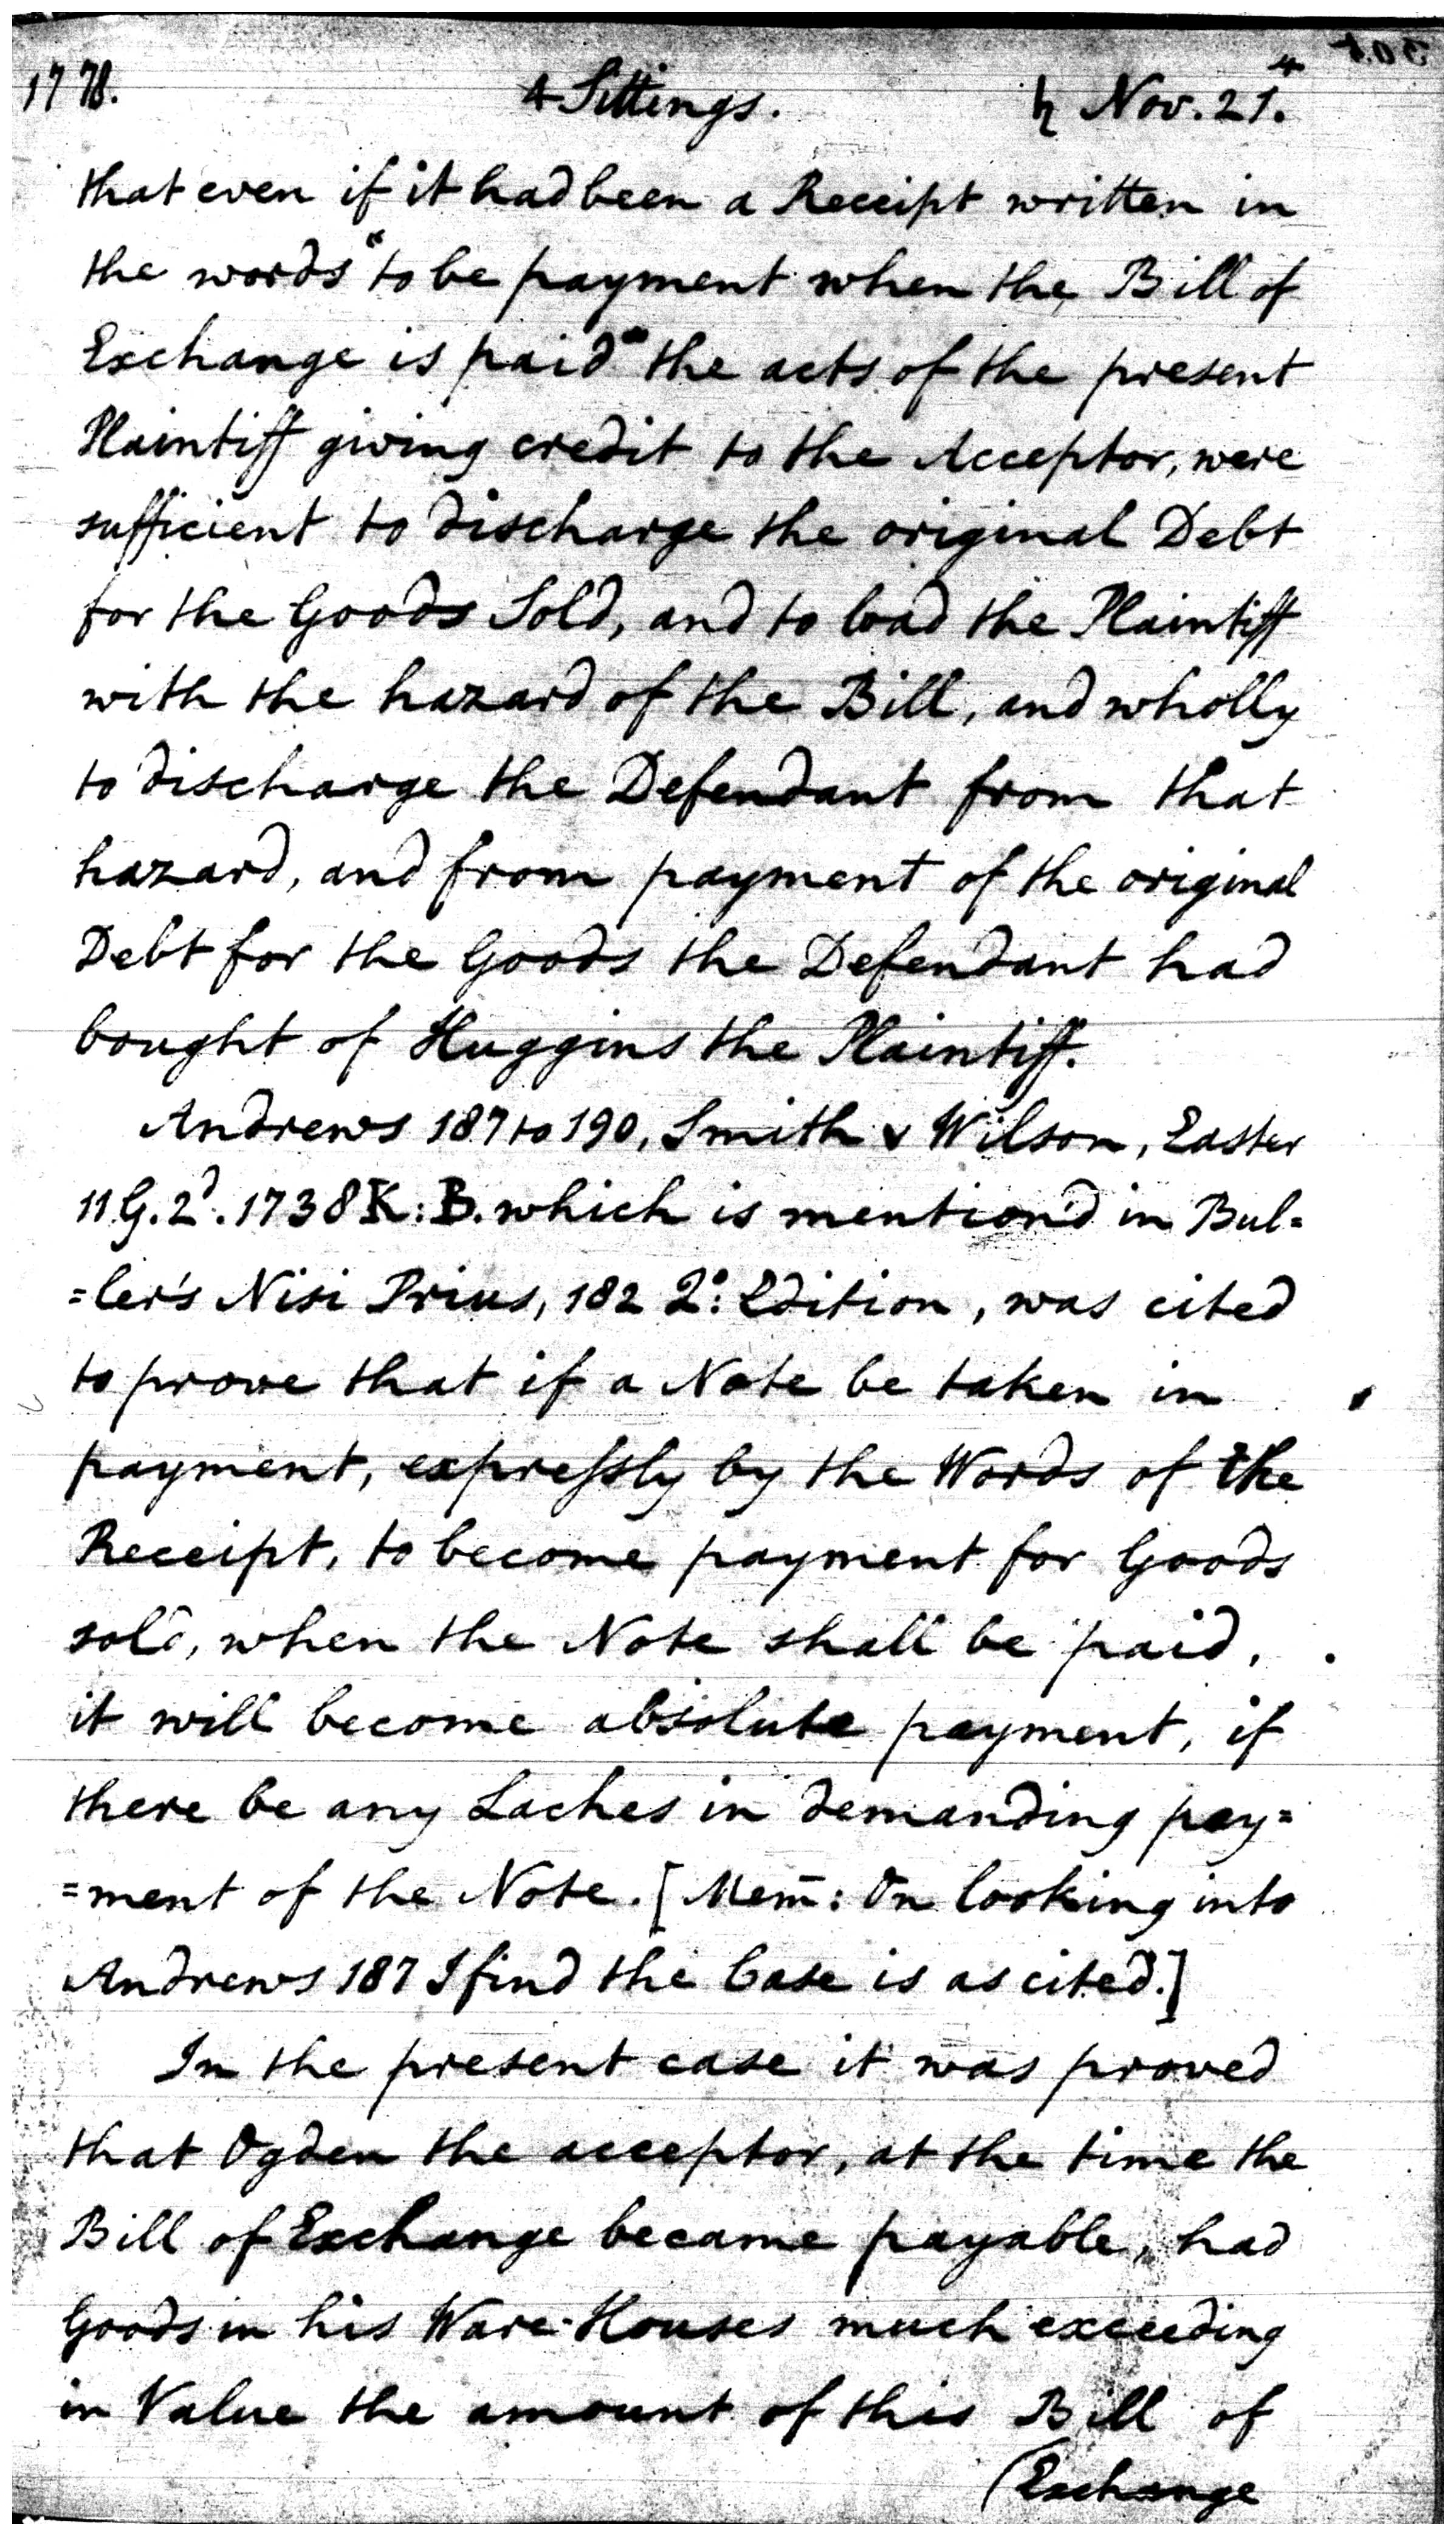 1778. 4 Sittings. ♄ Nov. 21.
that even if it had been a Receipt written in
the words "to be payment when the Bill of
Exchange is paid" the acts of the present
Plaintiff giving credit to the Acceptor, were
sufficient to discharge the original Debt
for the Goods Sold, and to load the Plaintiff
with the hazard of the Bill, and wholly
to discharge the Defendant from that
hazard, and from payment of the original
Debt for the Goods the Defendant had
bought of Huggins the Plaintiff.
Andrews 187 to 190, Smith v Wilson, Easter
11 G. 2d. 1738 K: B. which is mention'd in Bul=
=ler's Nisi Prius, 182 2o: Edition, was cited
to prove that if a Note be taken in
payment, expressly by the Words of the
Receipt, to become payment for Goods
sold, when the Note shall be paid,
it will become absolute payment, if
there be any Laches in demanding pay=
=ment of the Note. [Mem̄: On looking into
Andrews 187 I find the Case is as cited.]
In the present case it was proved
that Ogden the acceptor, at the time the
Bill of Exchange became payable, had
Goods in his Ware-Houses much exceeding
in Value the amount of this Bill of
(Exchange